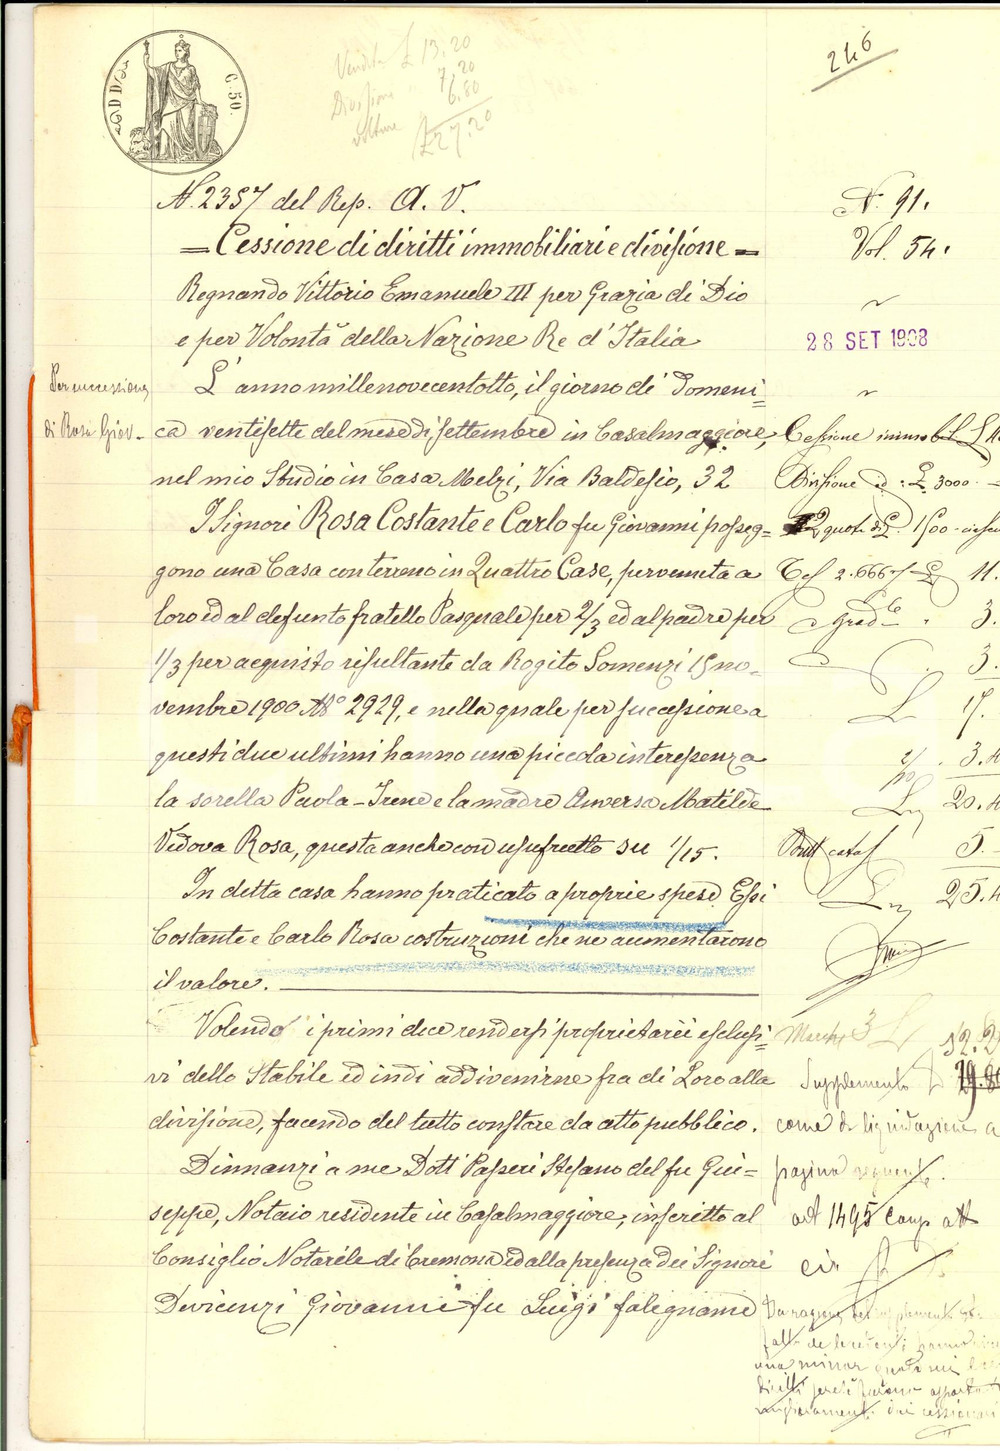 C. 50.
Vendita £ 13.20
7.20
Divisione 6.80
volture
£ 27.20
246
N. 2357 del Rep. A. V.
N. 91.
= Cessione di diritti immobiliari e divisione =
Vol. 54.
Regnando Vittorio Emanuele III per Grazia di Dio
e per Volontà della Nazione Re d'Italia
28 SET 1908
Per successione
di Rosa Giov.
L'anno millenovecentotto, il giorno di Domeni=
ca ventisette del mese di settembre in Casalmaggiore,
nel mio Studio in Casa Melzi, Via Baldesio, 32
I Signori Rosa Costante e Carlo fu Giovanni posseg=
gono una Casa con terreno in Quattro Case, pervenuta a
loro ed al defunto fratello Pasquale per 2/3 ed al padre per
1/3 per acquisto risultante da Rogito Somenzi 15 no-
vembre 1900 No 2929, e nella quale per successione a
questi due ultimi hanno una piccola interessenza
la sorella Paola-Irene e la madre Anversa Matilde
Vedova Rosa, questa anche con usufrutto su 1/15.
In detta casa hanno praticato a proprie spese Essi
Costante e Carlo Rosa costruzioni che ne aumentarono
il valore.
Volendo i primi due rendersi proprietarii esclusi=
vi dello Stabile ed indi addivenirne fra di Loro alla
divisione, facendo del tutto constare da atto pubblico.
Dinnanzi a me Dott. Passeri Stefano del fu Giu=
seppe, Notaio residente in Casalmaggiore, inscritto al
Consiglio Notarile di Cremona ed alla presenza dei Signori
Devicenzi Giovanni fu Luigi falegname
Cessione immob
Divisione £ 3000
2 quote di £ 1500
2.666 £ 11.
3.
3.
£ 17.
3.4
20.4
5.
25.4
Marche 3
52.2
Supplemento
come da liquidazione a
pagina seguente.
art 1495 Camp. att
una minor